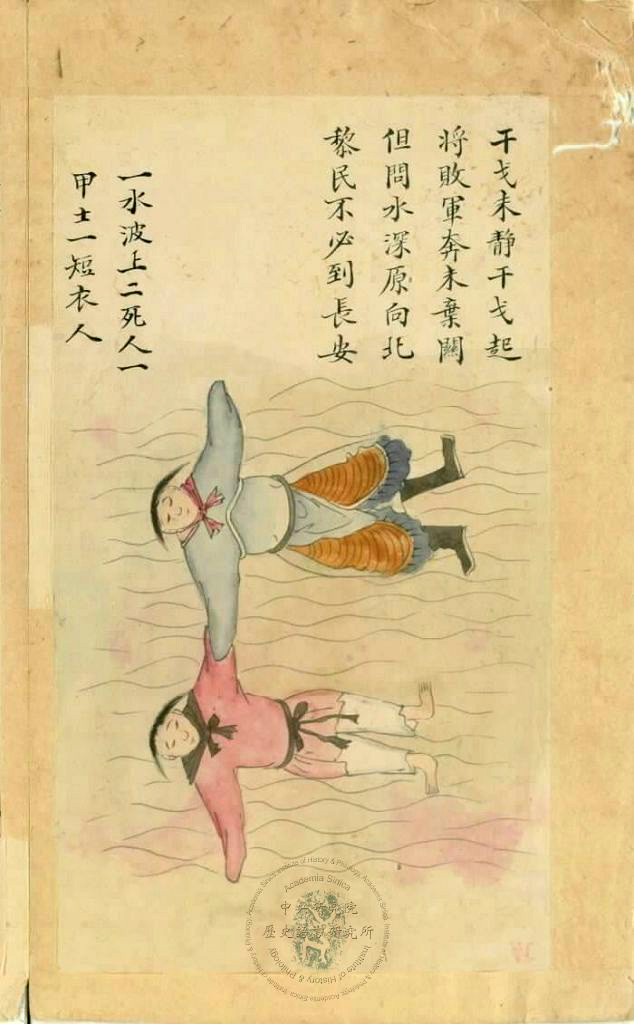 干戈未靜干戈起
將敗軍奔未棄關
但問水深原向北
黎民不必到長安
一水波上二死人一
甲士一短衣人
Academia Sinica
中央研究院
歷史語言研究所
Institute of History & Philology